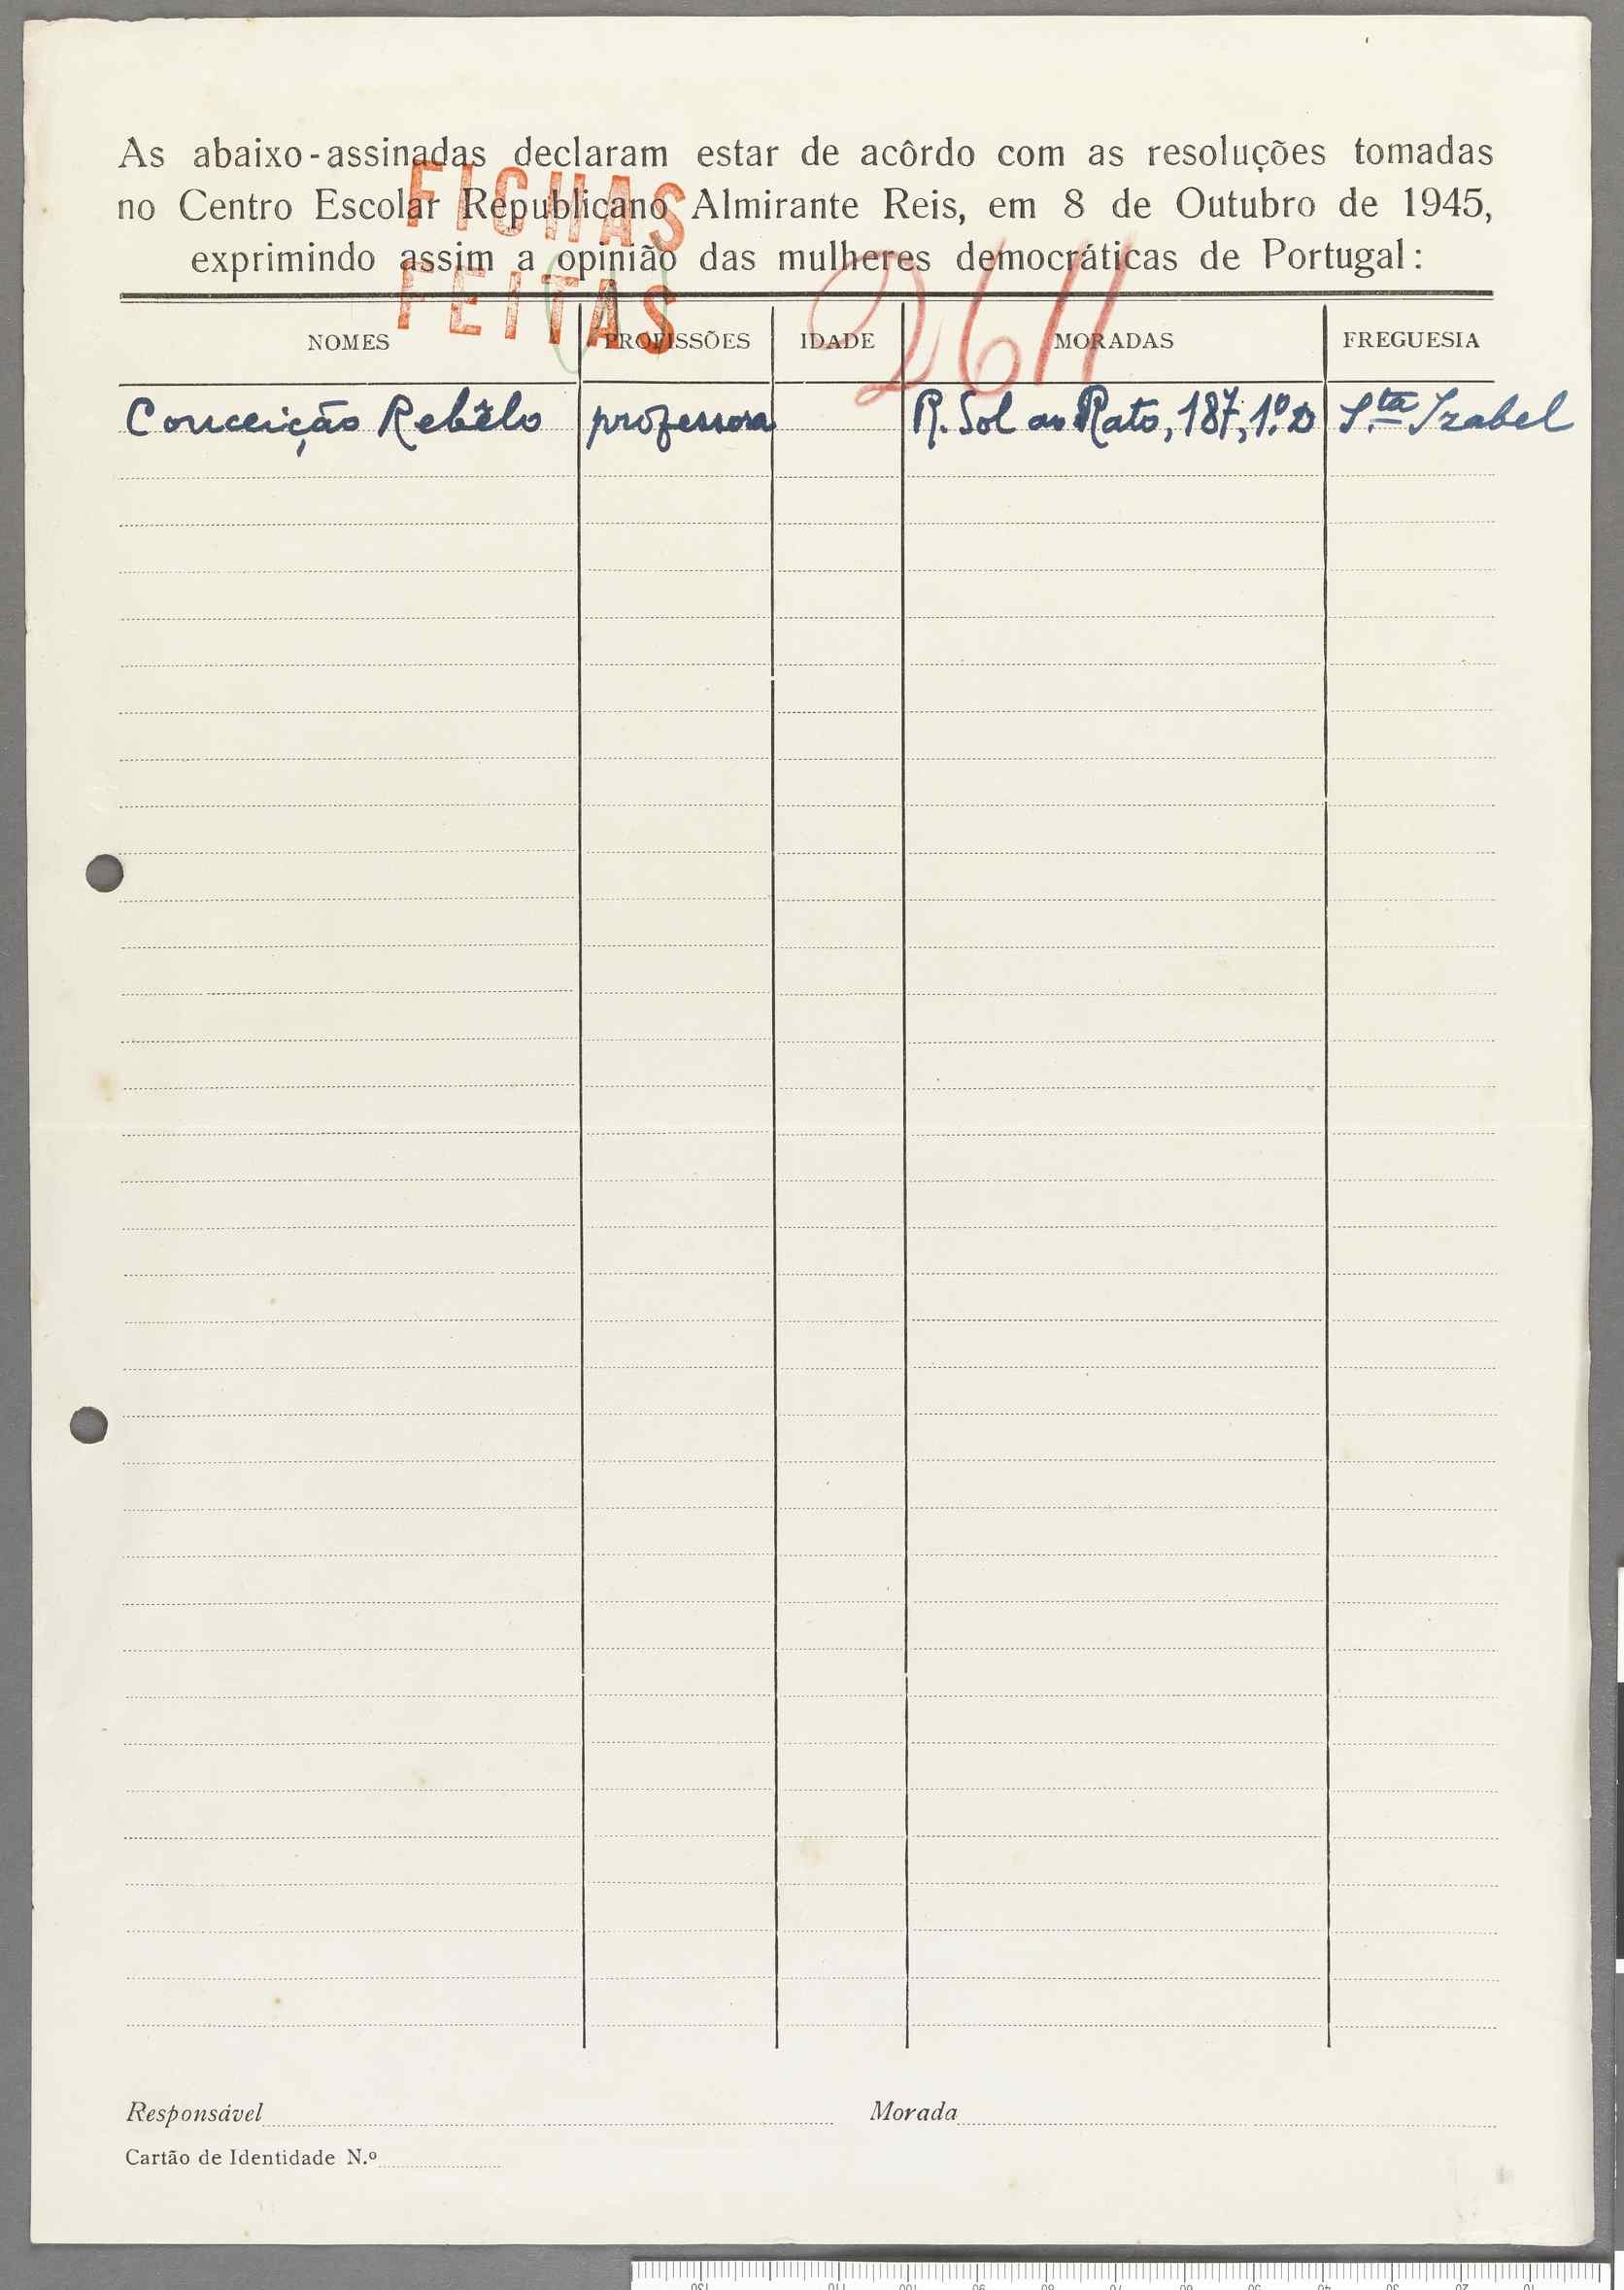 As abaixo-assinadas declaram estar de acôrdo com as resoluções tomadas
no Centro Escolar Republicano Almirante Reis, em 8 de Outubro de 1945,
exprimindo assim a opinião das mulheres democráticas de Portugal:
FICHAS
FEITAS
2611
NOMES PROFISSÕES IDADE MORADAS FREGUESIA
Conceição Rebêlo professora R. Sol ao Rato, 187, 1.º D S.ta Izabel
Responsável Morada
Cartão de Identidade N.º